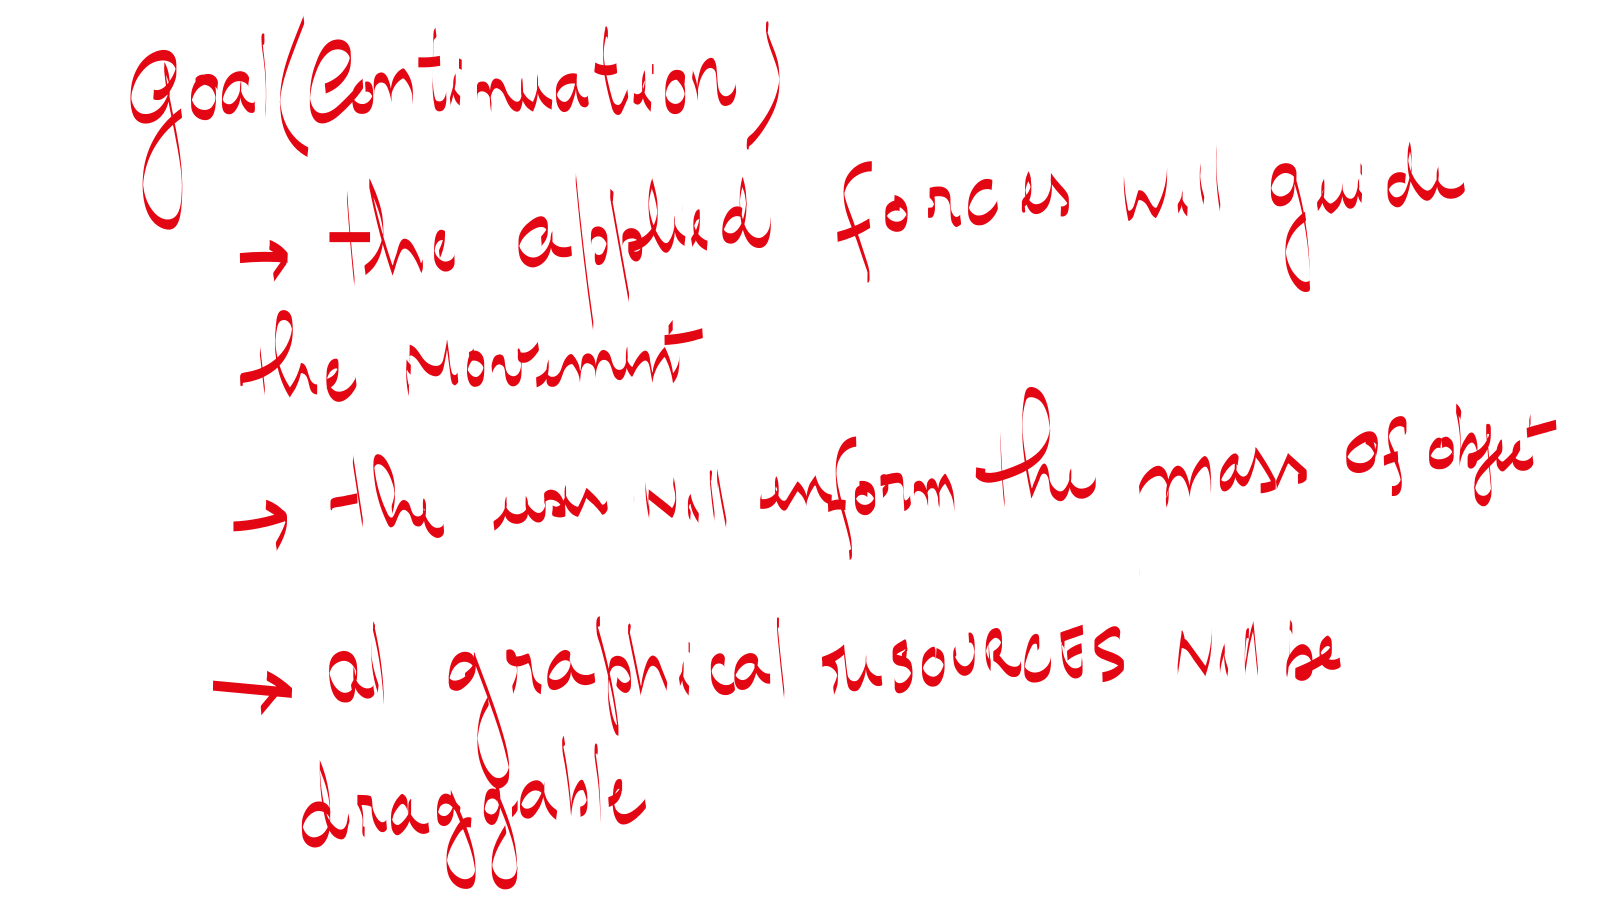 Goal (Continuation)
→ the applied forces will guide
the movement
→ the user will inform the mass of object
→ all graphical resources will be
draggable